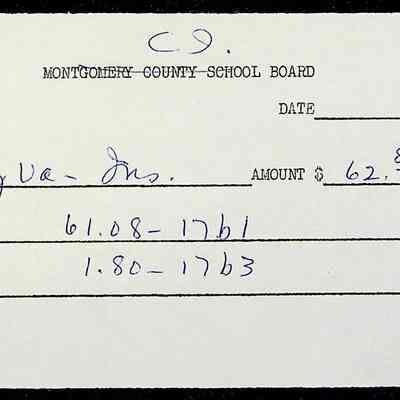 C.I.
MONTGOMERY COUNTY SCHOOL BOARD
DATE
Va - Ins. AMOUNT $ 62.8
61.08 - 1761
1.80 - 1763